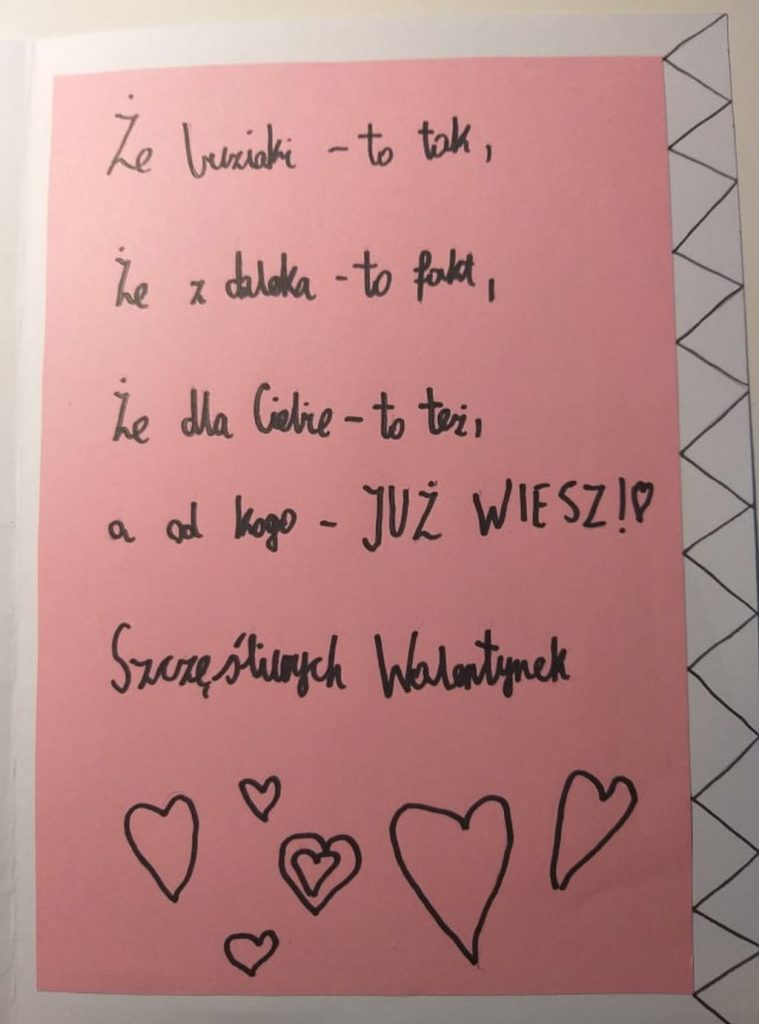 Że buziaki - to tak,
Że z daleka - to fakt,
Że dla Ciebie - to też,
a od kogo - JUŻ WIESZ!♡
Szczęśliwych Walentynek